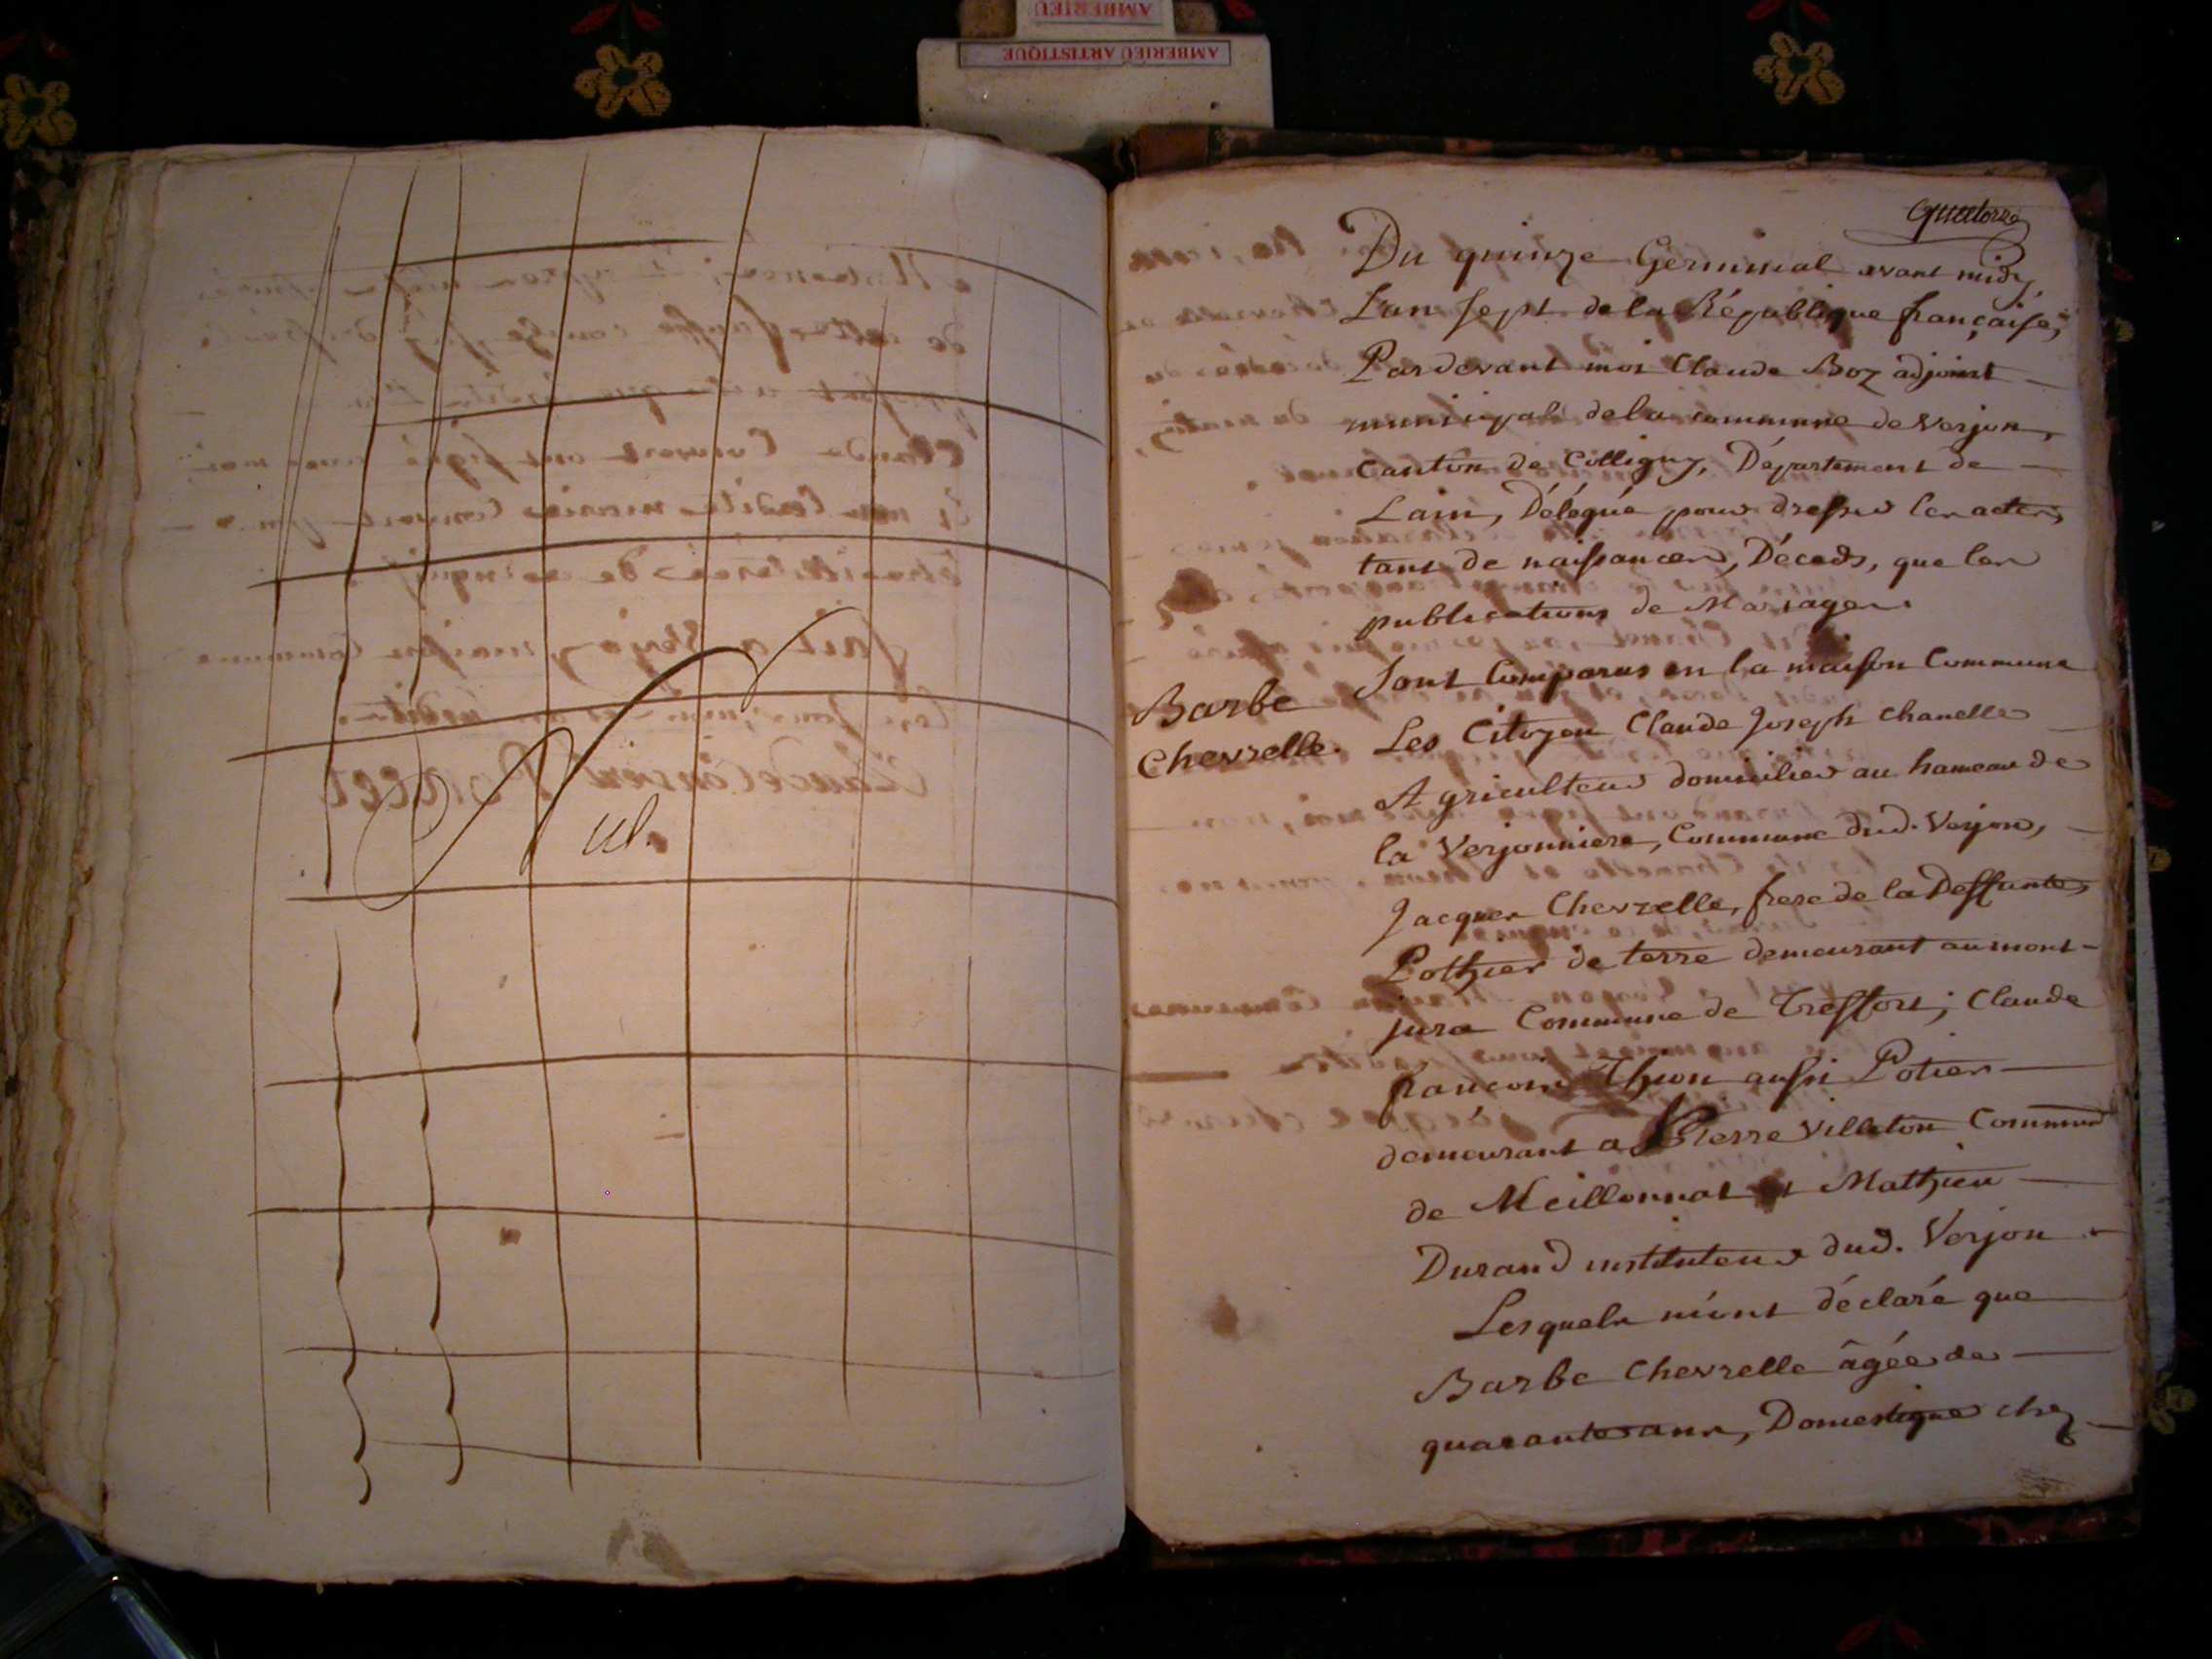 AMBERIEU
AMBERIEU ARTISTIQUE
Nul.
quatorze
Du quinze Germinal avant midy,
L'an sept de la République française,
Pardevant moi Claude Boz adjoint
municipal de la commune de Verjon,
Canton de Colligny, Département de
Lain, Délégué pour dresser les actes
tant de naissances, Déceds, que les
publications de Mariages.
Barbe
Chevrelle.
Sont Comparus en la maison Commune
Les Citoyen Claude Joseph Chanelle
Agriculteur domicilier au hameau de
la Verjonniere, Commune dud. Verjon,
Jacques Chevrelle, frere de la Deffunte,
Pothier de terre demeurant au mont-
jura Commune de Treffort; Claude
françois Thion aussi Potier
demeurant a Pierre Villeton Commune
de Meillonnat et Mathieu
Durand instituteur dud. Verjon
Lesquels m'ont déclaré que
Barbe Chevrelle âgée de
quarante ans, Domestique chez